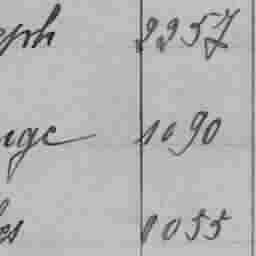 eph 2257
nge 1090
es 1055